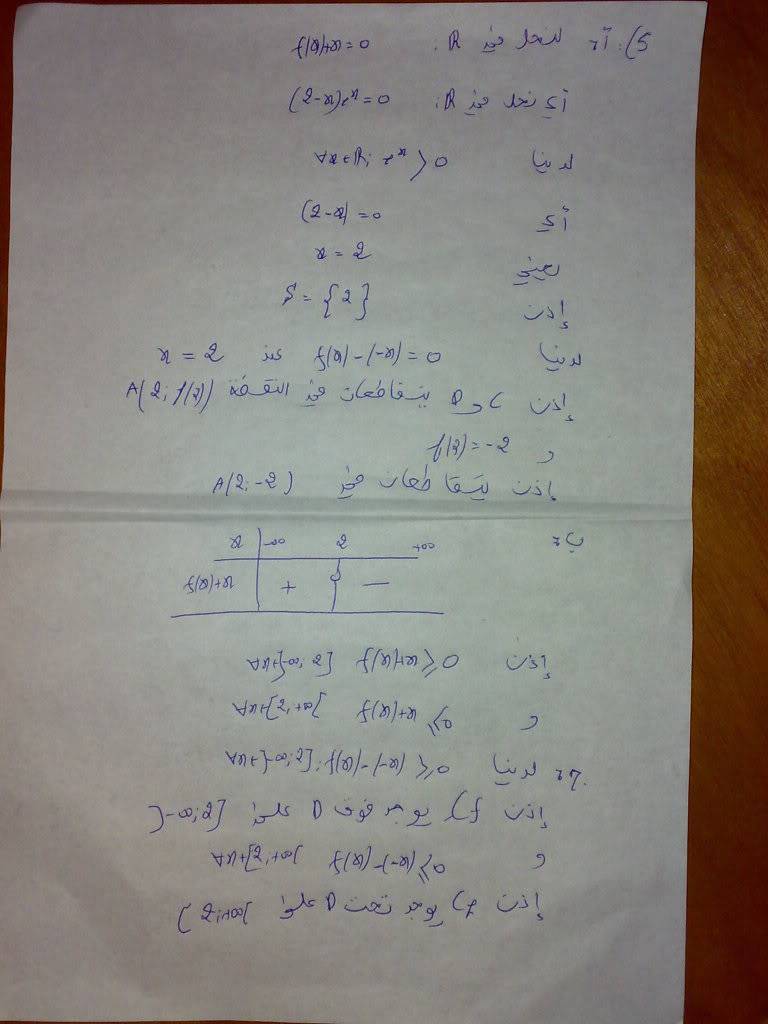 5) أ- لنحل في R: f(x)+x=0
أي نحل في R: (2-x)eˣ=0
لدينا ∀x∈R; eˣ>0
أي (2-x)=0
يعني x=2
إذن S={2}
لدينا f(x)-(-x)=0 عند x=2
إذن C و D يتقاطعان في النقطة A(2; f(2))
و f(2)=-2
إذن يتقاطعان في A(2;-2)
ب-
x | -∞ 2 +∞
f(x)+x | + 0 -
إذن ∀x∈]-∞;2] f(x)+x≥0
و ∀x∈[2;+∞[ f(x)+x≤0
ج- لدينا ∀x∈]-∞;2]; f(x)-(-x)≥0
إذن Cf يوجد فوق D على ]-∞;2]
و ∀x∈[2;+∞[ f(x)-(-x)≤0
إذن Cf يوجد تحت D على [2;+∞[